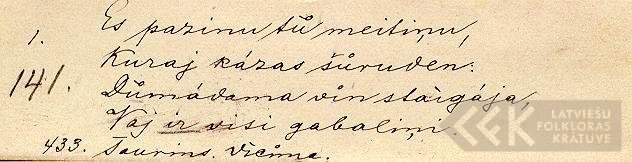 1. Es pazinu tů meitiņu,
141. Kuraj kázas šůruden:
Důmádama vin staigája,
Vaj ir visi gabaliņi.
433. Šauriņš.
LATVIEŠU
FOLKLORAS
KRĀTUVE